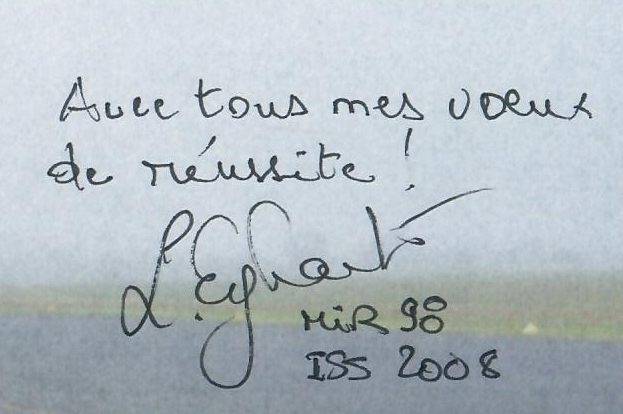 Avec tous mes voeux
de réussite !
L. Eyharts
MIR 98
ISS 2008